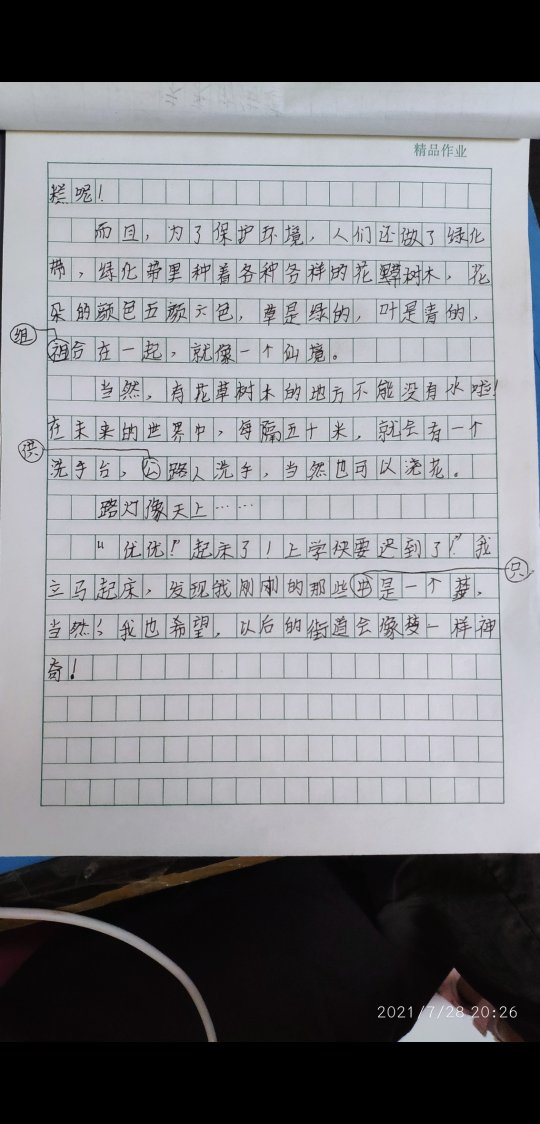 精品作业
烂呢！
而且，为了保护环境，人们还做了绿化
带，绿化带里种着各种各样的花草树木，花
朵的颜色五颜六色，草是绿的，叶是青的，
组
祖合在一起，就像一个仙境。
当然，有花草树木的地方不能没有水啦！
在未来的世界中，每隔五十米，就会有一个
供
洗手台，公路人洗手，当然也可以浇花。
路灯像天上……
“优优！”起床了！上学快要迟到了！”我
只
立马起床，发现我刚刚的那些是一个梦，
当然，我也希望，以后的街道会像梦一样神
奇！
2021/7/28 20:26